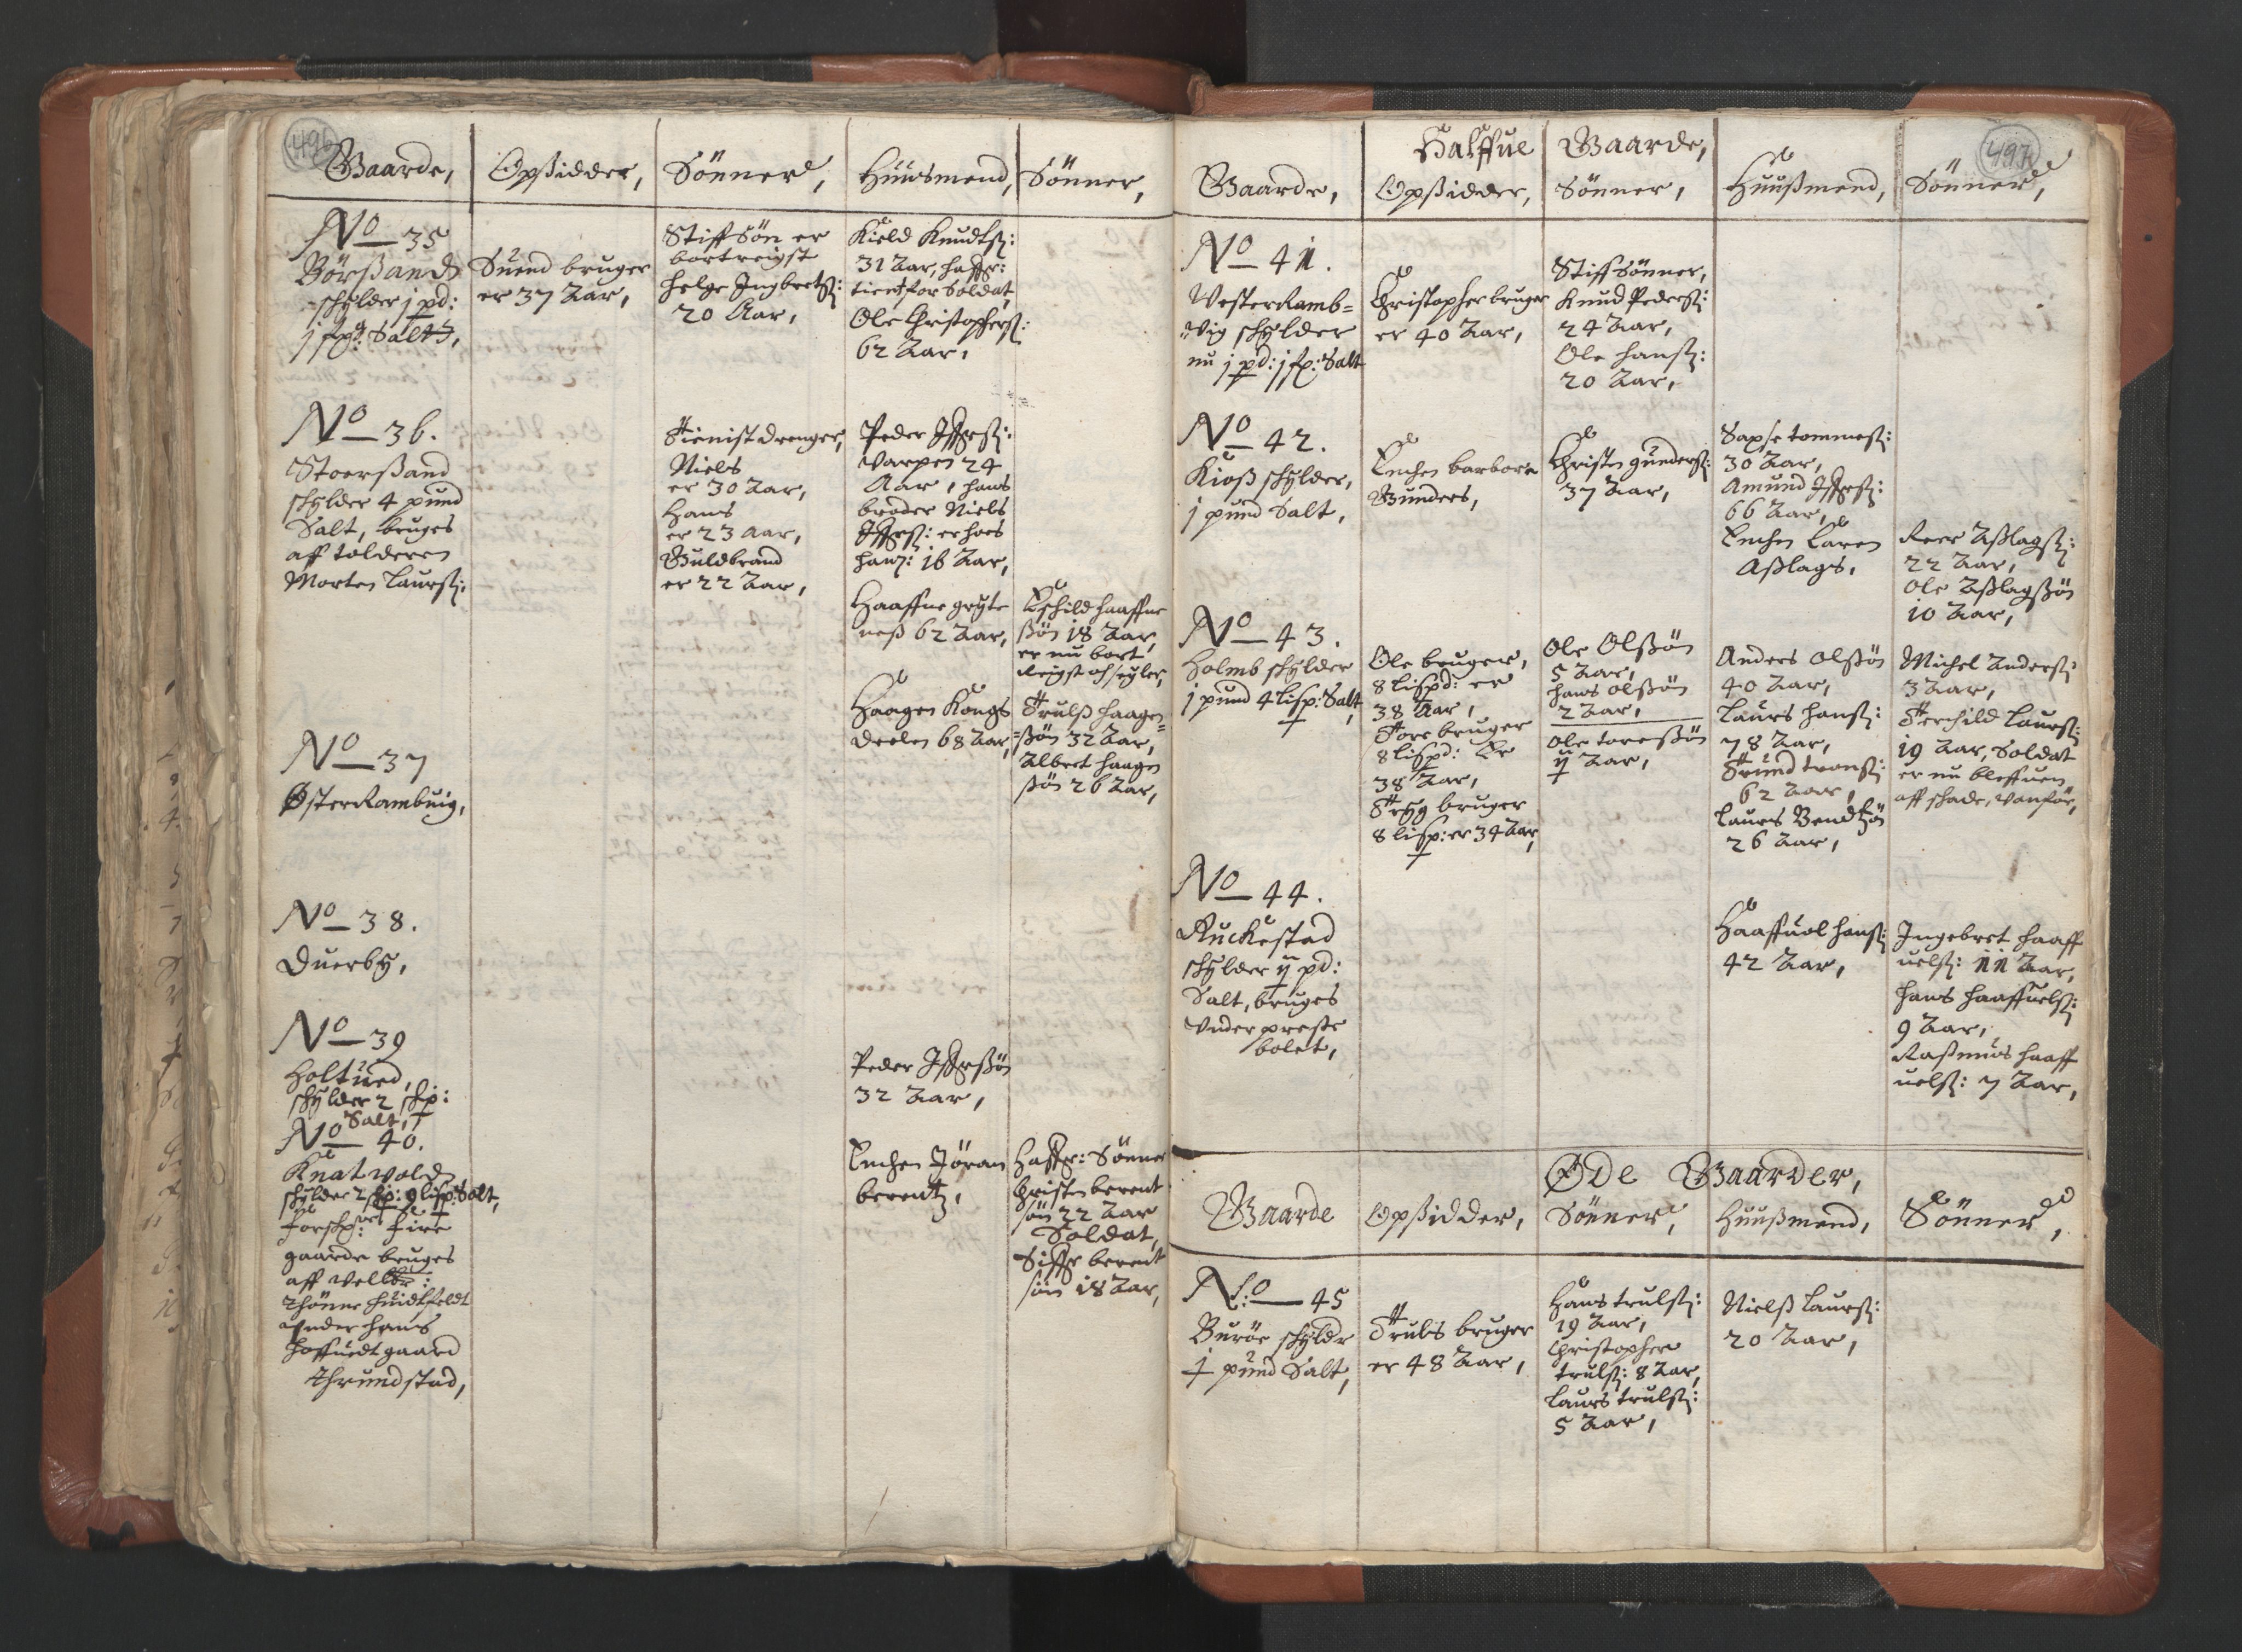 496
Gaarde, Opßidder, Sönner, Huusmend, Sönner,
No 35
Börßand
schylder j pd:
j skp: Salt,
Suend bruger
er 37 Aar,
Stiff Sön er
bortreigst
helge Ingbretß:
20 Aar,
Kield Knudtß:
31 Aar, haffr:
tient for Soldat,
Ole Christophersß:
62 Aar,
No 36.
Stoerßand
schylder 4 pund
Salt, bruges
aff tolderen
Morten Laurß:
Tienist drenger,
Niels
er 30 Aar,
Hans
er 23 Aar,
Guldbrand
er 22 Aar,
Peder
Varpen 24
Aar, hans
broder Niels
er hoes
hanß: 16 Aar,
Haaffue gryte
neß 62 Aar,
Eschild haaffue
ßön 18 Aar,
er nu bort
Reigst och seyler,
Haagen Kongs
deelen 68 Aar,
Trulß haagen=
=ßön 32 Aar,
Albret haagen
ßön 26 Aar,
No 37
ØsterRambuig,
No 38.
Duerby,
No 39
Holtued,
schylder 2 skp:
Salt,
Peder
32 Aar,
No 40.
Knatvold
schylder 2 skp: 9 lisp: Salt,
forschr: fire
gaarde bruges
aff Velbr:
Thönne Huidtfeldt
Vnder hans
hoffuedt gaard
Thrundstad,
Enchen Jöran
berentz,
Haffr: Sönner
Christen berent
sön 22 Aar
Soldat,
Siffr berent
sön 18 Aar,
497
Halffue Gaarde,
Gaarde, Opßidder, Sönner, Huußmend, Sönner,
No 41.
VesterRamb=
vig schylder
nu j pd: j skp: Salt
Christopher bruger
er 40 Aar,
Stiff Sönner,
Knud Pederß:
24 Aar,
Ole Hanß:
20 Aar,
No 42.
Kioß schylder,
j pund Salt,
Enchen barbore
Gunders,
Christen gunderß:
37 Aar,
Saxse tommeß:
30 Aar,
Amund
66 Aar,
Enchen Karen
Aßlags,
Reer Aßlagß:
22 Aar,
Ole Aßlagßön
10 Aar,
No 43.
Holmb schylder
j pund 4 lisp: Salt,
Ole bruger,
8 lispd: er
38 Aar,
Tore bruger
8 lispd: Er
38 Aar,
Tryg bruger
8 lisp: er 34 Aar,
Ole Olßön
5 Aar,
hans olßön
2 Aar,
Ole toreßön
ij Aar,
Anders Olßön
40 Aar,
Laurs Hanß:
78 Aar,
Trund tronß:
62 Aar,
Laurs Bendtzön
26 Aar,
Michel Anderß:
3 Aar,
Terchild Laurß:
19 Aar, Soldat
er nu bleffuen
aff schade, vanför,
No 44.
Ruckestad
schylder ij pd:
Salt, bruges
Vnder preste
bolet,
Haaffuol Hanß:
42 Aar,
Ingebret haaff
uelß: 11 Aar,
Hans haaffuelß:
9 Aar,
Raßmus haaff
uelß: 7 Aar,
Øde Gaarder,
Gaarde Opßidder, Sönner, Huußmend, Sönner,
No 45
Buröe schyldr
j pund Salt,
Truls bruger
er 48 Aar,
Hans trulß:
19 Aar,
Christopher
trulß: 8 Aar,
Laurs trulß:
5 Aar,
Nielß Laurß:
20 Aar,